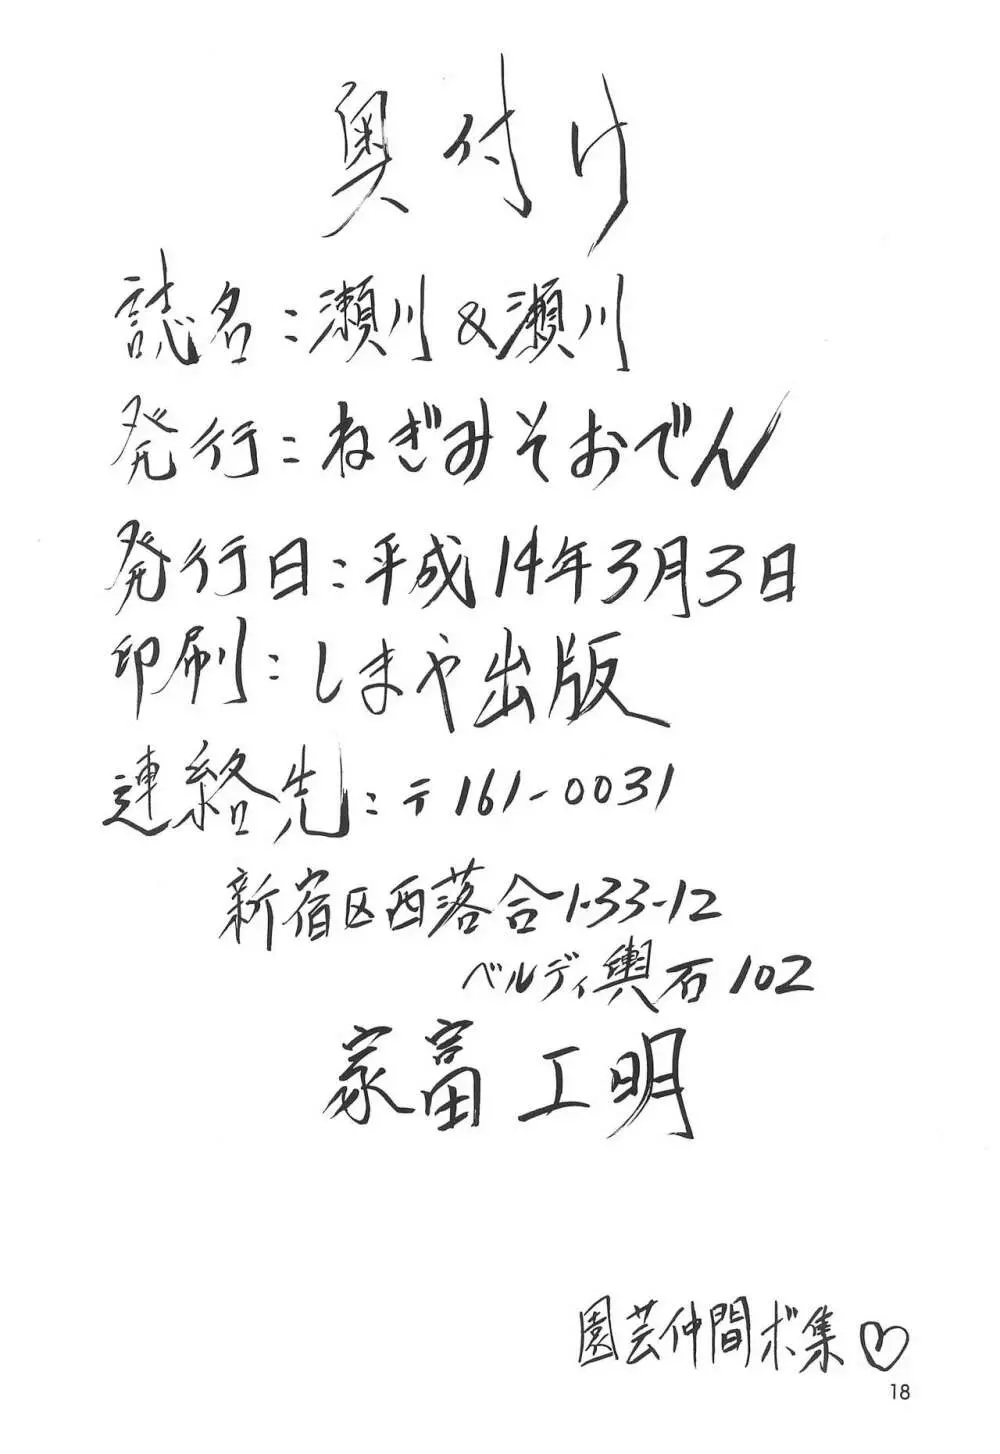 奥付け
誌名:瀬川&瀬川
発行:ねぎみそおでん
発行日:平成14年3月3日
印刷:しまや出版
連絡先:〒161-0031
新宿区西落合1-33-12
ベルディ輿石102
家富工明
園芸仲間ボ集♡
18